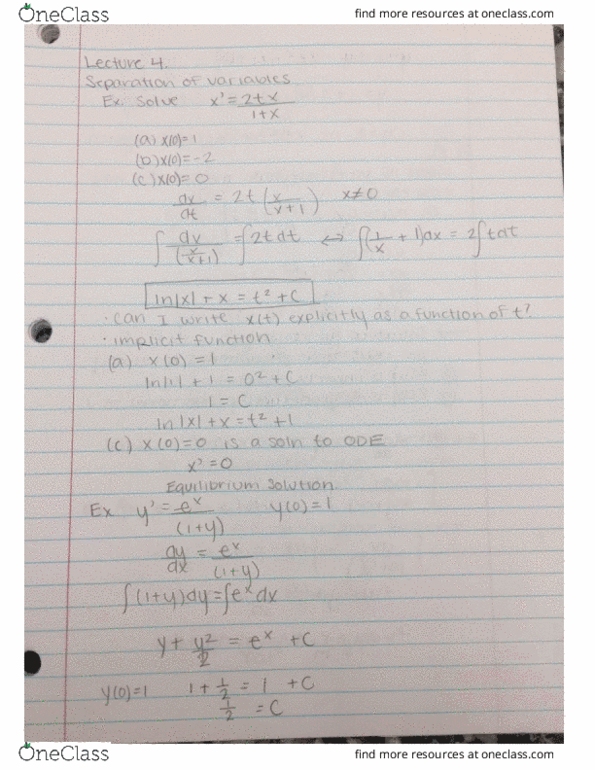 OneClass find more resources at oneclass.com
Lecture 4.
Separation of variables
Ex. Solve x' = 2tx / 1+x
(a) x(0)=1
(b) x(0)=-2
(c) x(0)=0
dx/dt = 2t (x/x+1) x≠0
∫ dx/(x/x+1) = ∫2tdt ⟺ ∫(1/x + 1)dx = 2∫tdt
ln|x| + x = t² + C
· can I write x(t) explicitly as a function of t?
· implicit function
(a) x(0) = 1
ln|1| + 1 = 0² + C
1 = C
ln|x| + x = t² + 1
(c) x(0) = 0 is a soln to ODE
x' = 0
Equilibrium Solution
Ex y' = eˣ/(1+y) y(0) = 1
dy/dx = eˣ/(1+y)
∫(1+y)dy = ∫eˣdx
y + y²/2 = eˣ + C
y(0)=1 1 + 1/2 = 1 + C
1/2 = C
OneClass find more resources at oneclass.com